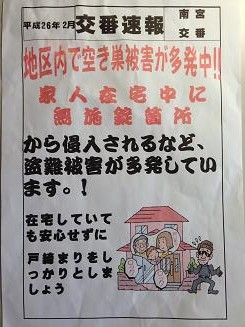 平成26年2月 交番速報 南宮交番
地区内で空き巣被害が多発中!!
家人在宅中に
無施錠箇所
から侵入されるなど、
盗難被害が多発してい
ます。!
在宅していて
も安心せずに
戸締まりをし
っかりとしま
しょう